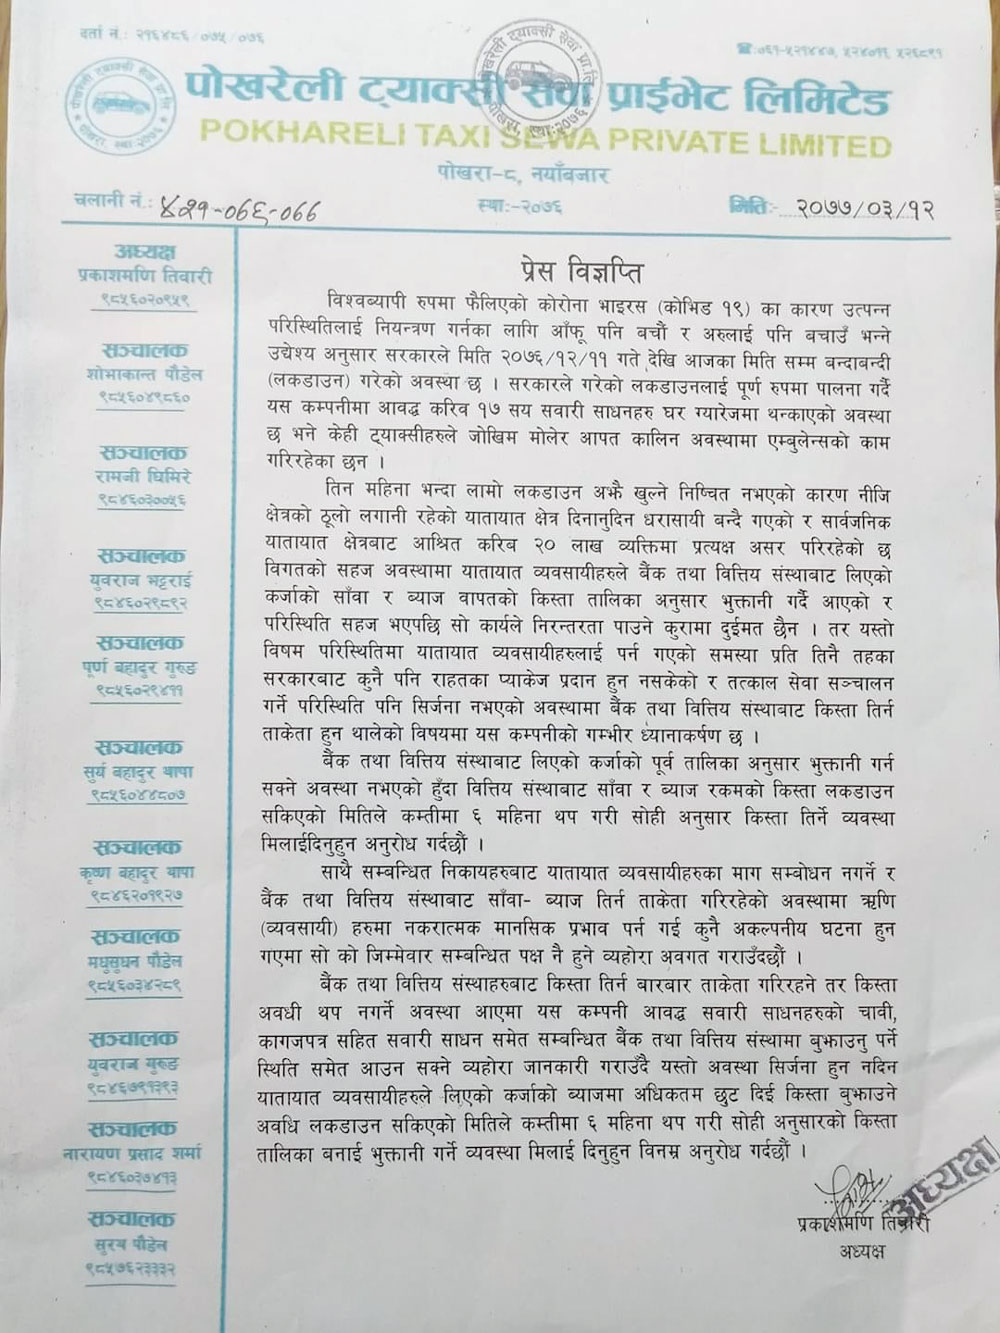 दर्ता नं.: २१६४८६/०७५/०७६
☎:०६१-५२१४४७, ५२४०११, ५२६८९१
पोखरेली ट्याक्सी सेवा प्राईभेट लिमिटेड
POKHARELI TAXI SEWA PRIVATE LIMITED
पोखरा-८, नयाँबजार
चलानी नं.:
स्था:-२०७६
मिति:- २०७७/०३/१२
अध्यक्ष
प्रकाशमणि तिवारी
९८५६०२०९५९
सञ्चालक
शोभाकान्त पौडेल
९८५६०४९८६०
सञ्चालक
रामजी घिमिरे
९८४६०३००५६
सञ्चालक
युवराज भट्टराई
९८४६०२९८९२
सञ्चालक
पूर्ण बहादुर गुरुङ
९८५६०२९४११
सञ्चालक
सुर्य बहादुर थापा
९८५६०४४८०७
सञ्चालक
कृष्ण बहादुर थापा
९८४६२०१९२७
सञ्चालक
मधुसुधन पौडेल
९८५६०३४२८९
सञ्चालक
युवराज गुरुङ
९८४६७९१३९३
सञ्चालक
नारायण प्रसाद शर्मा
९८४६०३७४१३
सञ्चालक
सुरय पौडेल
९८५७६२३३३२
प्रेस विज्ञप्ति
विश्वब्यापी रुपमा फैलिएको कोरोना भाइरस (कोभिड १९) का कारण उत्पन्न
परिस्थितिलाई नियन्त्रण गर्नका लागि आँफू पनि बचौं र अरुलाई पनि बचाउँ भन्ने
उद्येश्य अनुसार सरकारले मिति २०७६/१२/११ गते देखि आजका मिति सम्म बन्दाबन्दी
(लकडाउन) गरेको अवस्था छ । सरकारले गरेको लकडाउनलाई पूर्ण रुपमा पालना गर्दै
यस कम्पनीमा आवद्ध करिव १७ सय सवारी साधनहरु घर ग्यारेजमा थन्काएको अवस्था
छ भने केही ट्याक्सीहरुले जोखिम मोलेर आपत कालिन अवस्थामा एम्बुलेन्सको काम
गरिरहेका छन ।
तिन महिना भन्दा लामो लकडाउन अझै खुल्ने निष्चित नभएको कारण नीजि
क्षेत्रको ठूलो लगानी रहेको यातायात क्षेत्र दिनानुदिन धरासायी बन्दै गएको र सार्वजनिक
यातायात क्षेत्रबाट आश्रित करिब २० लाख व्यक्तिमा प्रत्यक्ष असर परिरहेको छ
विगतको सहज अवस्थामा यातायात व्यवसायीहरुले बैंक तथा वित्तिय संस्थाबाट लिएको
कर्जाको साँवा र ब्याज वापतको किस्ता तालिका अनुसार भुक्तानी गर्दै आएको र
परिस्थिति सहज भएपछि सो कार्यले निरन्तरता पाउने कुरामा दुईमत छैन । तर यस्तो
विषम परिस्थितिमा यातायात व्यवसायीहरुलाई पर्न गएको समस्या प्रति तिनै तहका
सरकारबाट कुनै पनि राहतका प्याकेज प्रदान हुन नसकेको र तत्काल सेवा सञ्चालन
गर्ने परिस्थिति पनि सिर्जना नभएको अवस्थामा बैंक तथा वित्तिय संस्थाबाट किस्ता तिर्न
ताकेता हुन थालेको विषयमा यस कम्पनीको गम्भीर ध्यानाकर्षण छ ।
बैंक तथा वित्तिय संस्थाबाट लिएको कर्जाको पूर्व तालिका अनुसार भुक्तानी गर्न
सक्ने अवस्था नभएको हुँदा वित्तिय संस्थाबाट साँवा र ब्याज रकमको किस्ता लकडाउन
सकिएको मितिले कम्तीमा ६ महिना थप गरी सोही अनुसार किस्ता तिर्ने व्यवस्था
मिलाईदिनुहुन अनुरोध गर्दछौं ।
साथै सम्बन्धित निकायहरुबाट यातायात व्यवसायीहरुका माग सम्बोधन नगर्ने र
बैंक तथा वित्तिय संस्थाबाट साँवा- ब्याज तिर्न ताकेता गरिरहेको अवस्थामा ऋणि
(व्यवसायी) हरुमा नकरात्मक मानसिक प्रभाव पर्न गई कुनै अकल्पनीय घटना हुन
गएमा सो को जिम्मेवार सम्बन्धित पक्ष नै हुने व्यहोरा अवगत गराउँदछौं ।
बैंक तथा वित्तिय संस्थाहरुबाट किस्ता तिर्न बारबार ताकेता गरिरहने तर किस्ता
अवधी थप नगर्ने अवस्था आएमा यस कम्पनी आवद्ध सवारी साधनहरुको चावी,
कागजपत्र सहित सवारी साधन समेत सम्बन्धित बैंक तथा वित्तिय संस्थामा बुझाउनु पर्ने
स्थिति समेत आउन सक्ने व्यहोरा जानकारी गराउँदै यस्तो अवस्था सिर्जना हुन नदिन
यातायात व्यवसायीहरुले लिएको कर्जाको ब्याजमा अधिकतम छुट दिई किस्ता बुझाउने
अवधि लकडाउन सकिएको मितिले कम्तीमा ६ महिना थप गरी सोही अनुसारको किस्ता
तालिका बनाई भुक्तानी गर्ने व्यवस्था मिलाई दिनुहुन विनम्र अनुरोध गर्दछौं ।
अध्यक्ष
प्रकाशमणि तिवारी
अध्यक्ष